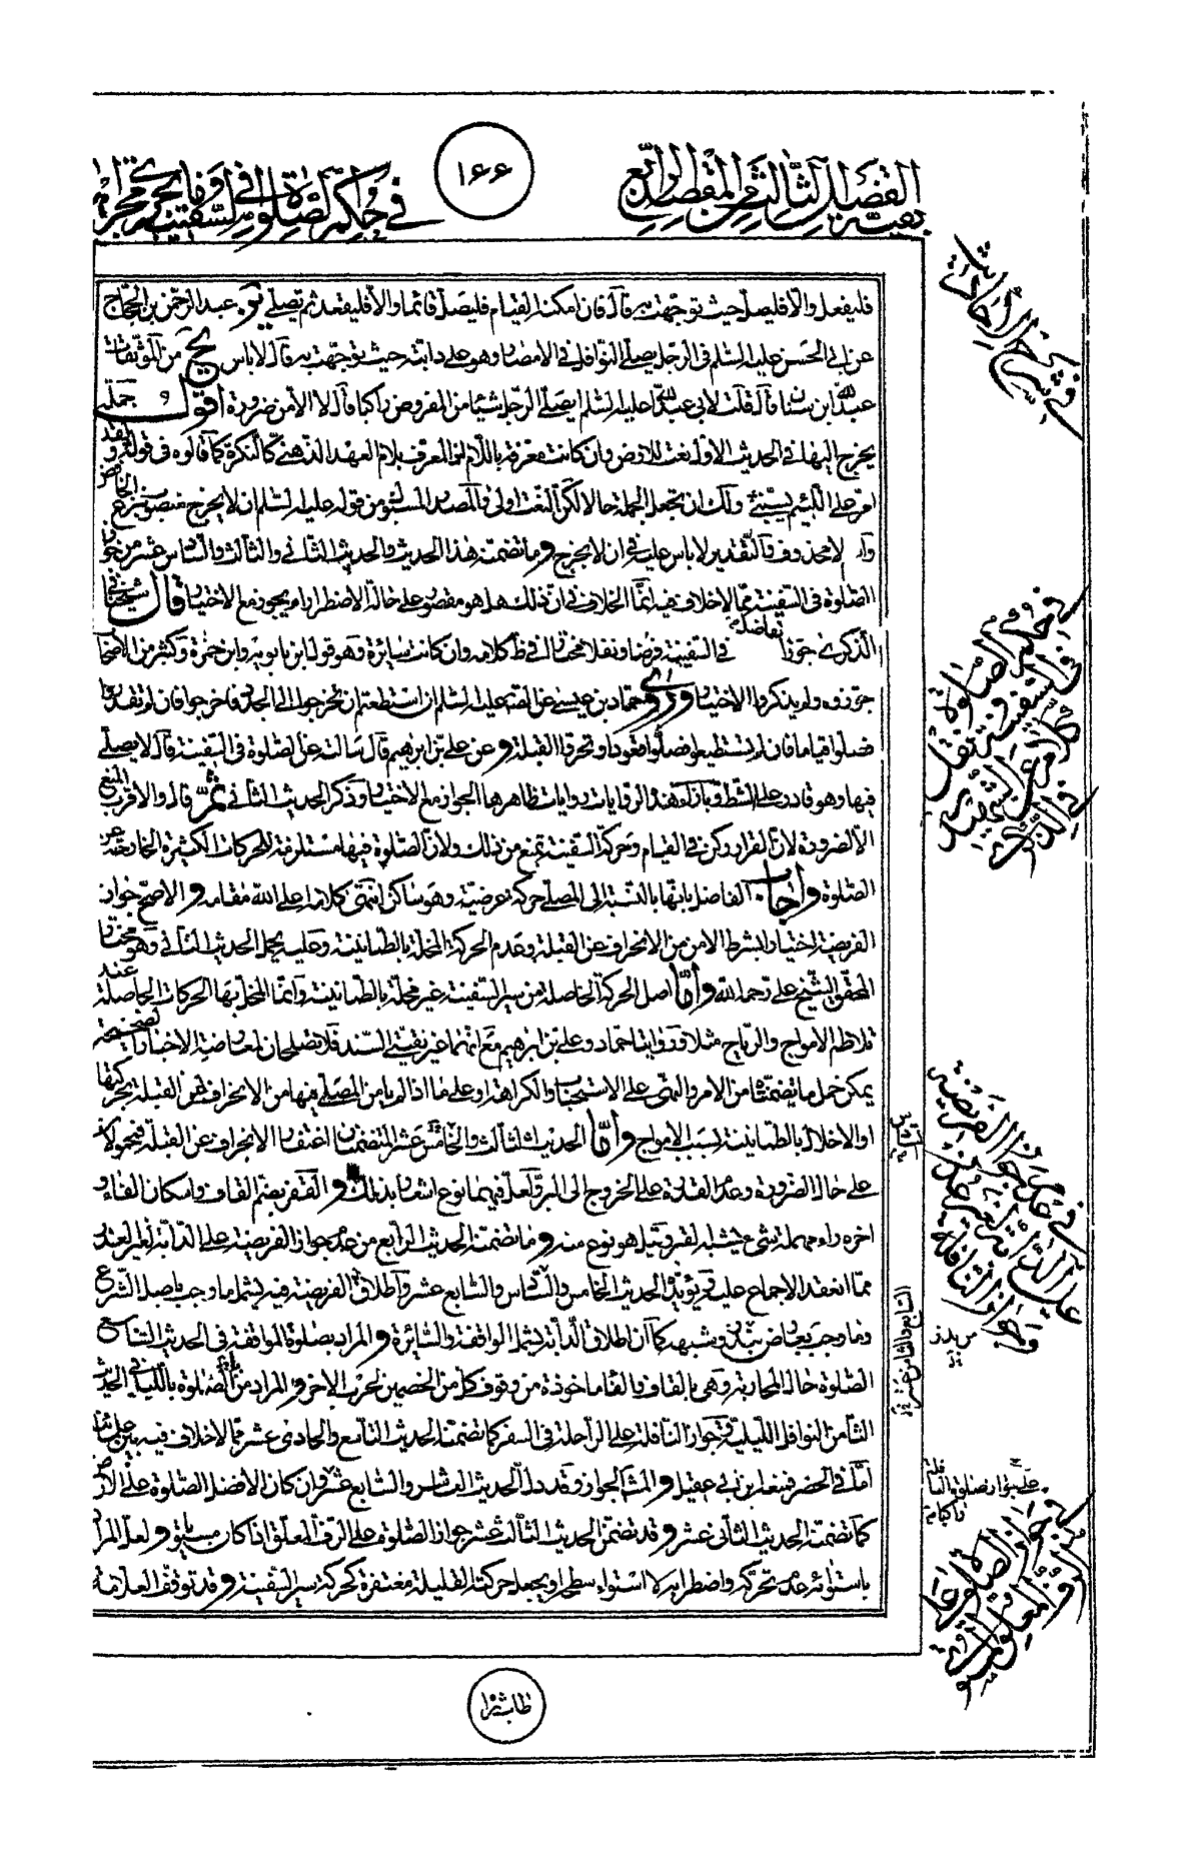 الفصل الثالث من المقصد الرابع
١٦٦
بقية
في حكم الصلوة في السفينة
فليفعل والا فليصل حيث توجهت به قال فان امكنه القيام فليصل قائما والا فليقعد ثم يصلي يو عبد الرحمن بن الحجاج
عن ابي الحسن عليه السلم في الرجل يصلي النوافل في الامصار وهو على دابته حيث توجهت به قال لا باس يح من الموثقات
عبد الله ابن سنان قال قلت لابي عبد الله عليه السلم ايصلي الرجل شيئا من المفروض راكبا قال لا الا من ضرورة اقول و جملة
يخرج اليها في الحديث الاول نعت للارض وان كانت معرفة باللام لان المعرف بلام العهد الذهني كالنكرة كما قالوه في قوله ولقد
امر على اللئيم يسبني ولك ان تجعل الجملة حالا لكن النعت اولى والمصدر المسبوك من قوله عليه السلم ان لا يخرج منصوب بنزع الخافض
لا محذوف والتقدير لا باس عليه في ان لا يخرج وما تضمنه هذا الحديث والحديث الثاني والثالث والسادس عشر من جواز
الصلوة في السفينة مما لا خلاف فيه انما الخلاف في ان ذلك هل هو مقصور على حالة الاضطرار ام يجوز مع الاختيار قال شيخنا في
الذكرى جوز الفاضل في السفينة فرضا ونفلا مختارا في ظ كلامه وان كانت سائرة وهو قول ابن بابويه وابن حمزة وكثير من الاصحاب
جوزوه ولم يذكروا الاختيار وروى حماد بن عيسى عن الصه عليه السلم ان استطعتم ان تخرجوا الى الجدد فاخرجوا فان لم تقدروا
فصلوا قياما فان لم تستطيعوا فصلوا قعودا وتحروا القبلة وعن علي بن ابرهيم قال سالته عن الصلوة في السفينة قال لا يصلي
فيها وهو قادر على الشط وبازاء هذه الروايات روايات ظاهرها الجواز مع الاختيار وذكر الحديث الثاني ثم قال والاقرب المنع
الا لضرورة لان القرار ركن في القيام وحركة السفينة تمنع من ذلك ولان الصلوة فيها مستلزمة للحركات الكثيرة الخارجة عن
الصلوة واجاب الفاضل بانها بالنسبة الى المصلي حركة عرضية وهو ساكن انتهى كلامه اعلى الله مقامه والاصح جواز
الفريضة اختيارا بشرط الامن من الانحراف عن القبلة وعدم الحركة المخلة بالطمانينة وعليه يحمل الحديث الثاني وهو مختار
المحقق الشيخ علي رحمه الله واما اصل الحركة الحاصلة من سير السفينة غير مخلة بالطمانينة وانما المخل بها الحركات الحاصلة عند
تلاطم الامواج والرياح مثلا وروايتا حماد وعلي بن ابرهيم مع انهما غير نقيتي السند فلا تصلحان لمعارضة الاخبار الصحيحة
يمكن حمل ما تضمنتاه من الامر والنهي على الاستحباب والكراهة او على ما اذا لم يامن المصلي فيها من الانحراف عن القبلة بحركتها
او الاخلال بالطمانينة بسبب الامواج واما الحديث الثالث والخامس عشر المتضمنان اغتفار الانحراف عن القبلة فمحمولان
على حال الضرورة وعدم القدرة على الخروج الى البر ولعل فيهما نوع اشعار بذلك والقفر بضم القاف واسكان الفاء و
اخره راء مهملة شيء يشبه القير وقيل هو نوع منه وما تضمنه الحديث الرابع من عدم جواز الفريضة على الدابة لغير العذر
مما انعقد الاجماع عليه ويؤيده الحديث الخامس والسادس والسابع عشر واطلاق الفريضة فيه يشمل ما وجب باصل الشرع
وما وجب بعارض بنذر وشبهه كما ان اطلاق الدابة يشمل الواقفة والسائرة والمراد بصلوة المواقفة في الحديث السابع
الصلوة حال المحاربة وهي بالقاف والفاء ماخوذة من وقوف كل من الخصمين لحرب الاخر والمراد من الصلوة بالليل في الحديث
الثامن النوافل الليلية وجواز النافلة على الراحلة في السفر كما تضمنه الحديث التاسع والحادي عشر مما لا خلاف فيه بين علمائنا
اما في الحضر فمنعه ابن ابي عقيل والمشه الجواز وقد دل الحديث العاشر والسابع عشر وان كان الافضل الصلوة على الارض
كما تضمنه الحديث الثاني عشر وقد تضمن الحديث الثالث عشر جواز الصلوة على الرف المعلق اذا كان مستويا ولعل المراد
باستوائه عدم تحركه واضطرابه لا استواء سطحه او يجعل حركته القليلة مغتفرة كحركة سير السفينة وقد توقف العلامة
في شرح الاحاديث
في حكم الصلوة
في السفينة ونقل
كلام عن الشهيد
في الذكرى
في عدم جواز الفريضة
على الدابة لغير عذر
وجواز النافلة
على جواز صلوة النافلة
راكبا
في جواز الصلوة على
الرف المعلق
طاب ثراه